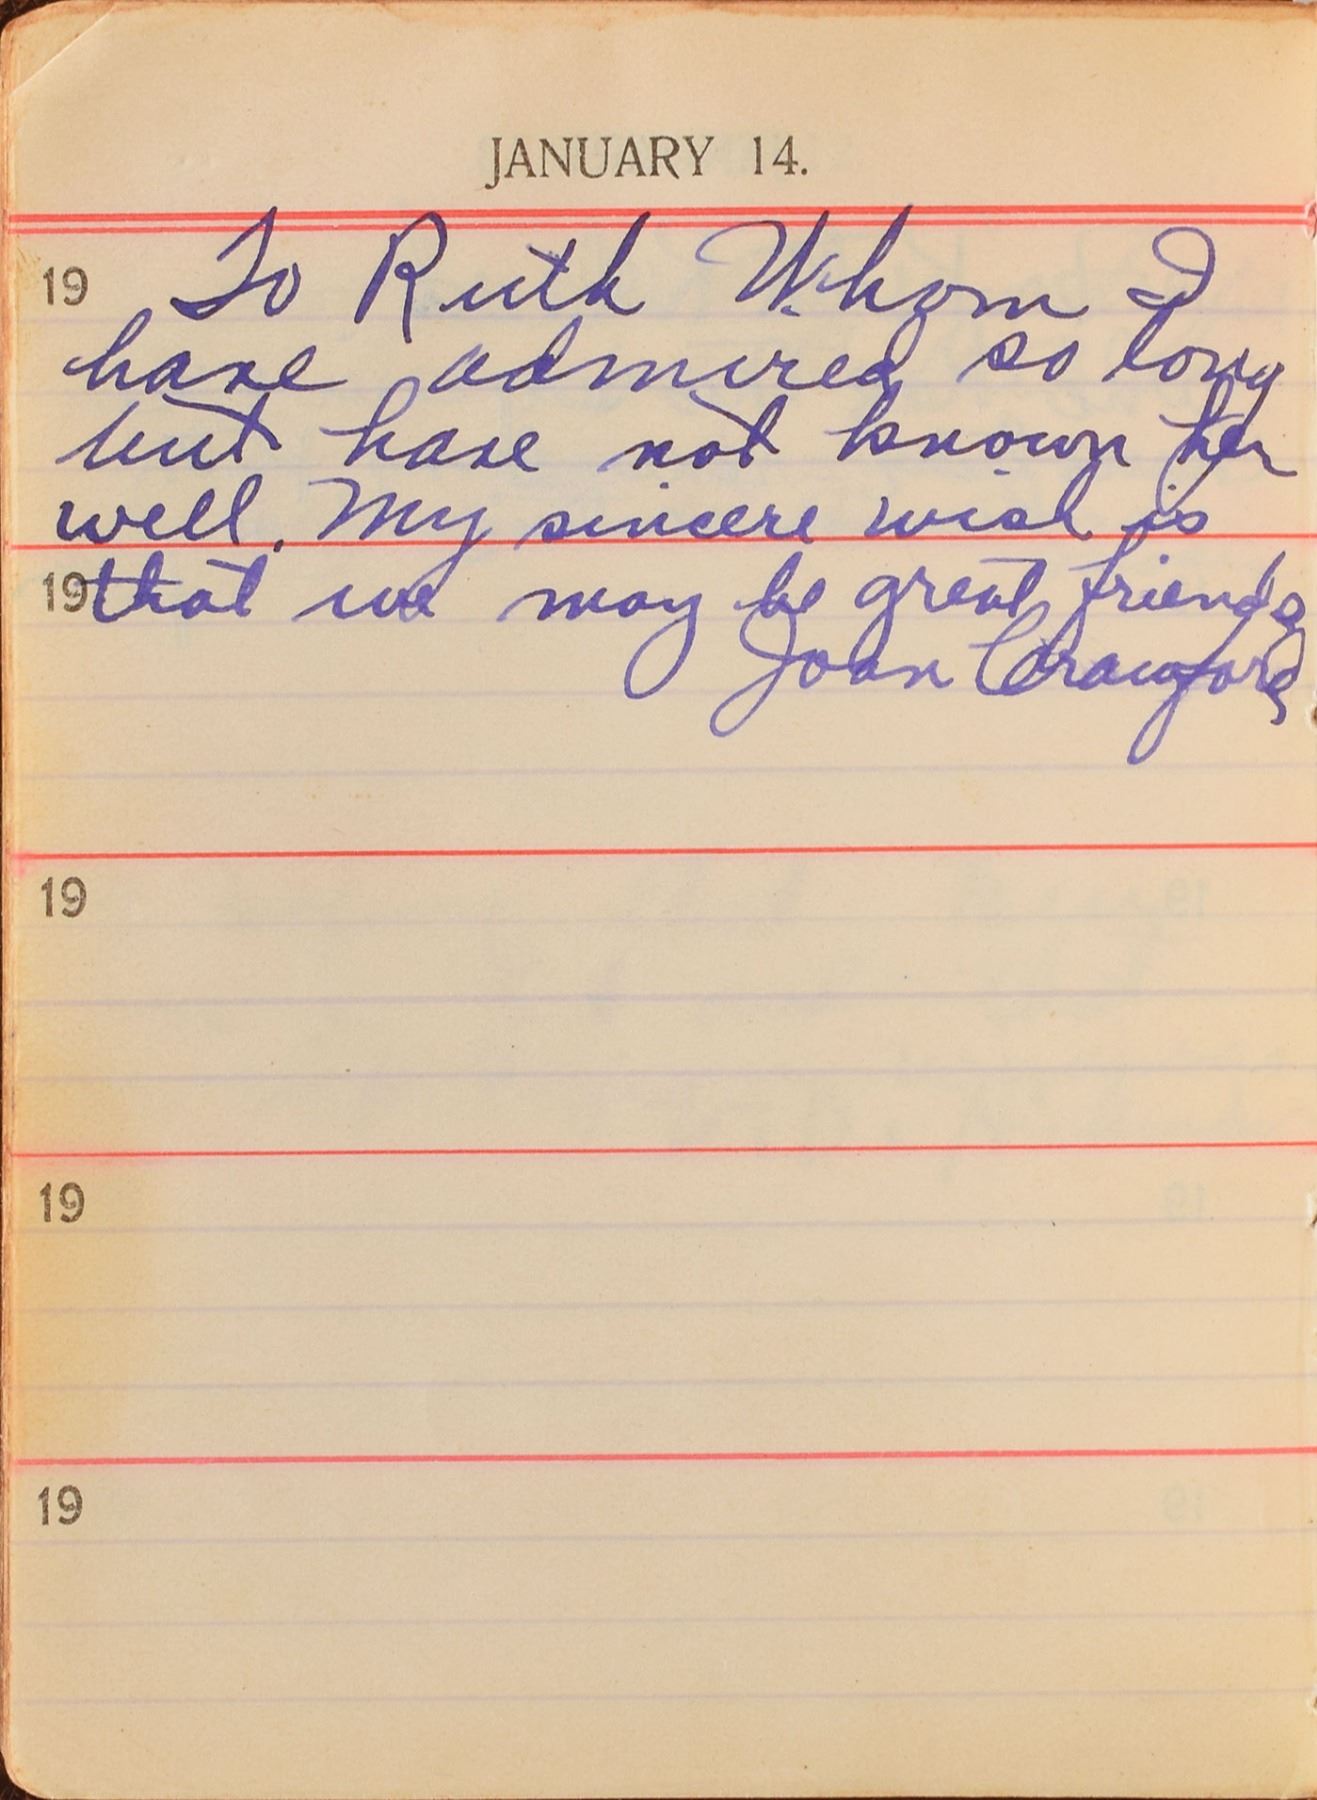 JANUARY 14.
19 To Ruth Whom I
have admired so long
but have not known her
well. My sincere wish is
19 that we may be great friends
Joan Crawford
19
19
19